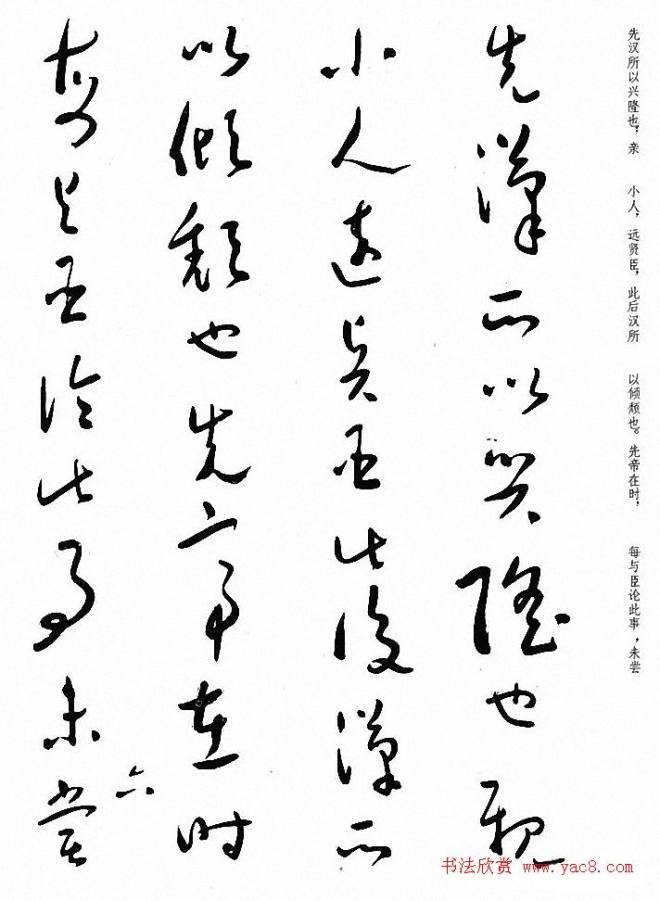 先汉所以兴隆也，亲 小人，远贤臣，此后汉所 以倾颓也。先帝在时， 每与臣论此事，未尝
先漢所以興隆也親
小人遠賢臣此後漢所
以傾頹也先帝在時
每與臣論此事未嘗
六
书法欣赏 www.yac8.com